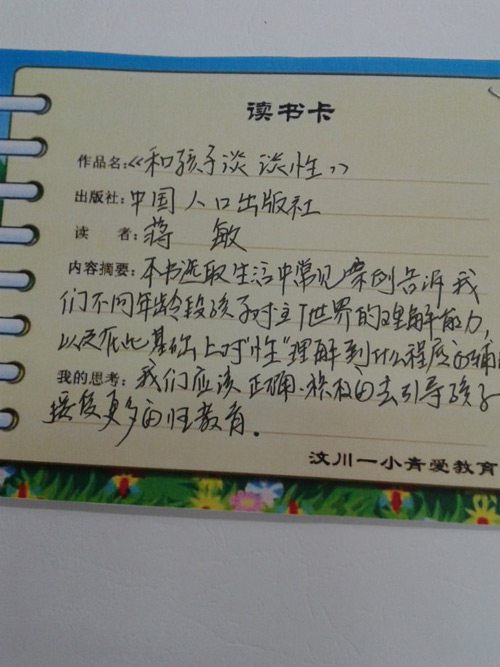 读书卡
作品名：《和孩子谈谈性》
出版社：中国人口出版社
读 者：蒋 敏
内容摘要：本书选取生活中常见案例告诉我
们不同年龄段孩子对主T世界的理解能力，
以及在此基础上对“性”理解到什么程度的辅
我的思考：我们应该正确、积极的去引导孩子
接受更多的性教育。
汶川一小青爱教育